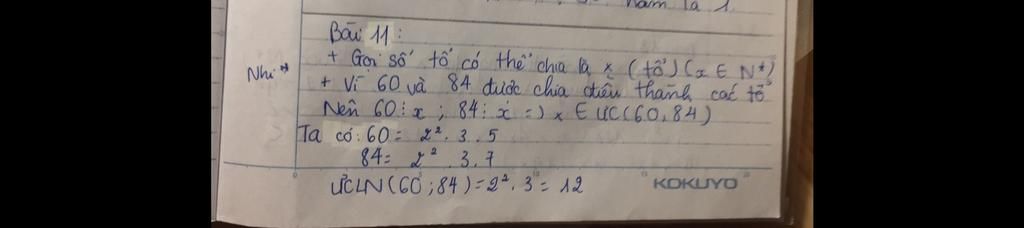 năm là 1.
Bài 11:
+ Gọi số tổ có thể chia là x (tổ) (x ∈ N*)
Nhi *
+ Vì 60 và 84 được chia đều thành các tổ
Nên 60 ⋮ x ; 84 ⋮ x => x ∈ ƯC(60,84)
Ta có: 60 = 2². 3. 5
84 = 2². 3. 7
ƯCLN(60;84) = 2². 3 = 12
KOKUYO